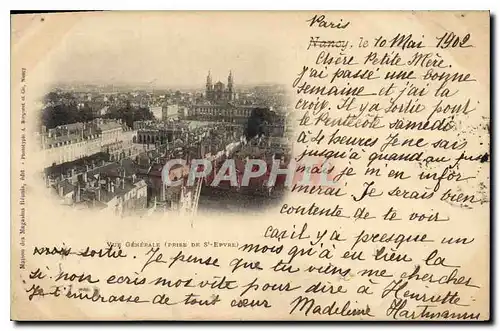 Paris
Nancy, le 10 Mai 1902
Chère Petite Mère.
J'ai passé une bonne
semaine et j'ai la
croix. Il y a Sortie pour
la Pentecôte Samedi
à 4 heures Je ne sais
jusqu'à quand, au
mais je m'en infor
merai Je serais bien
contente de te voir
car il y a presque un
mois qu'à eu lieu la
mon sortie. Je pense que tu viens me chercher
si non ecris moi vite pour dire à Henriette
Je t'embrasse de tout cœur Madeleine Hartmann
VUE GÉNÉRALE (PRISE DE St-EPVRE)
Maison des Magasins Réunis, édit. Phototypie A. Bergeret et Cie, Nancy
CPARAMA